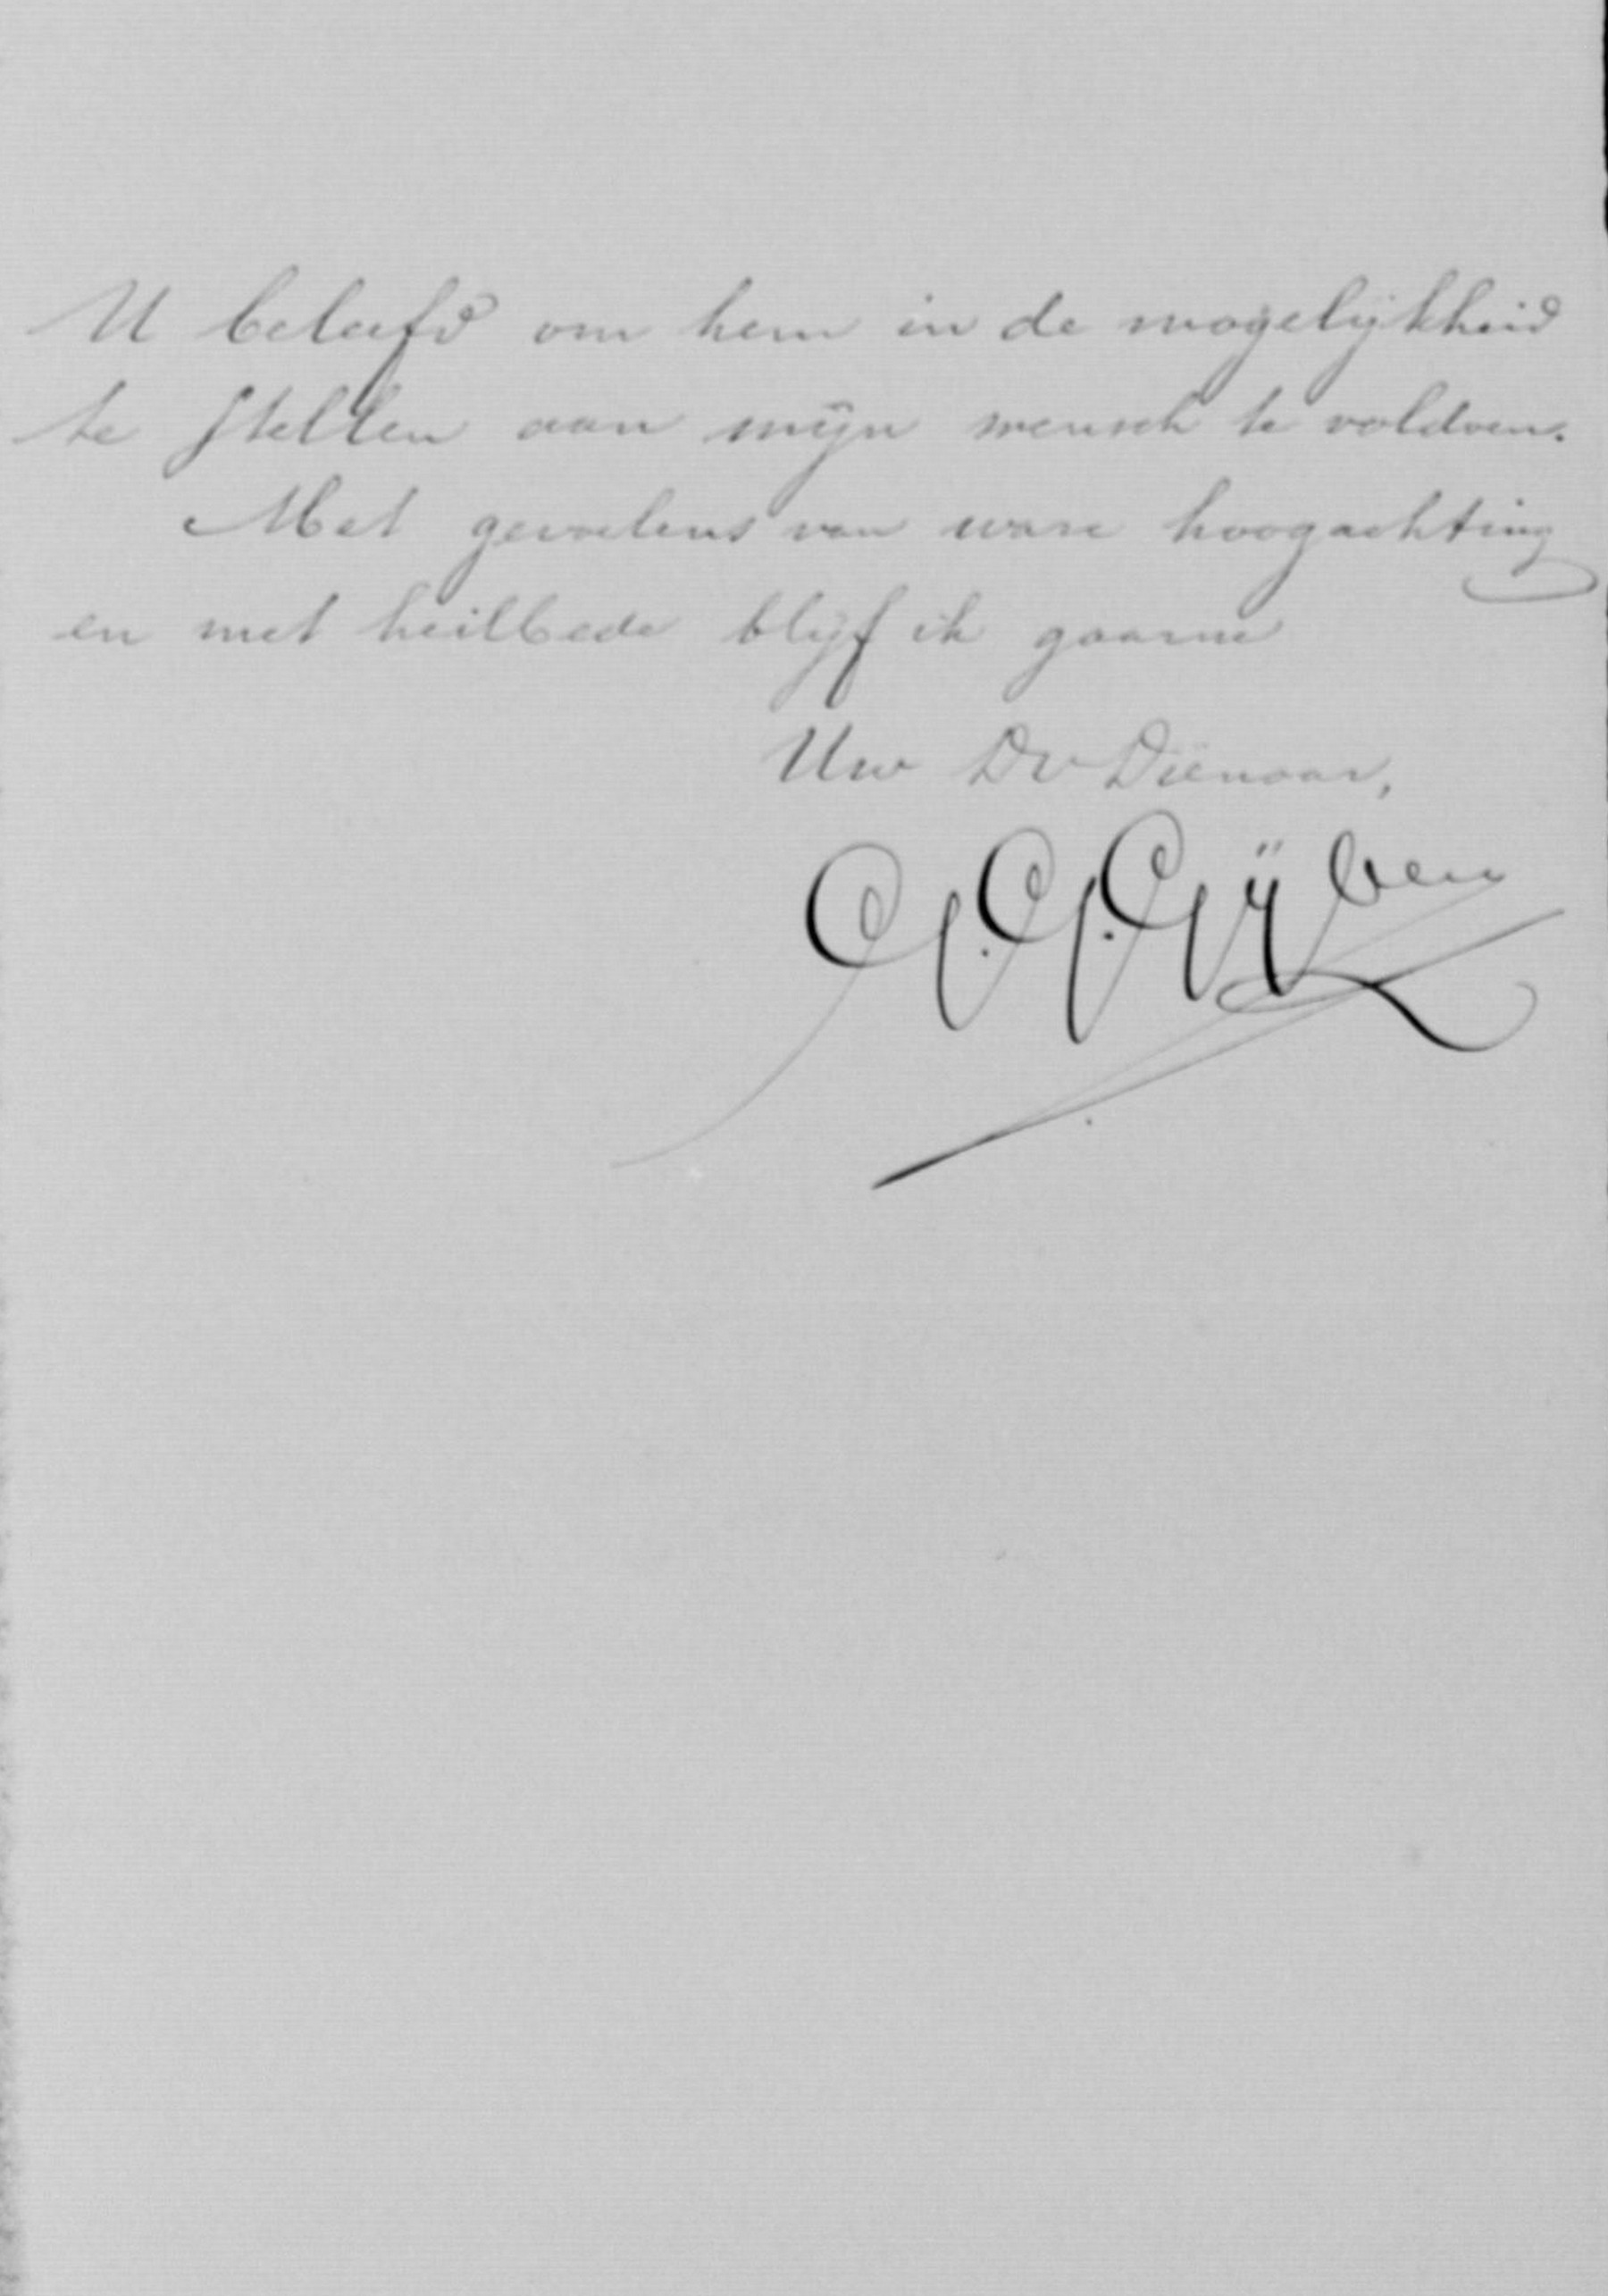 U beleefd om hem in de mogelijkheid
te stellen aan mijn wensch te voldoen.
Met gevoelens van ware hoogachting
en met heilbede blijf ik gaarne
Uw Dv Dienaar,